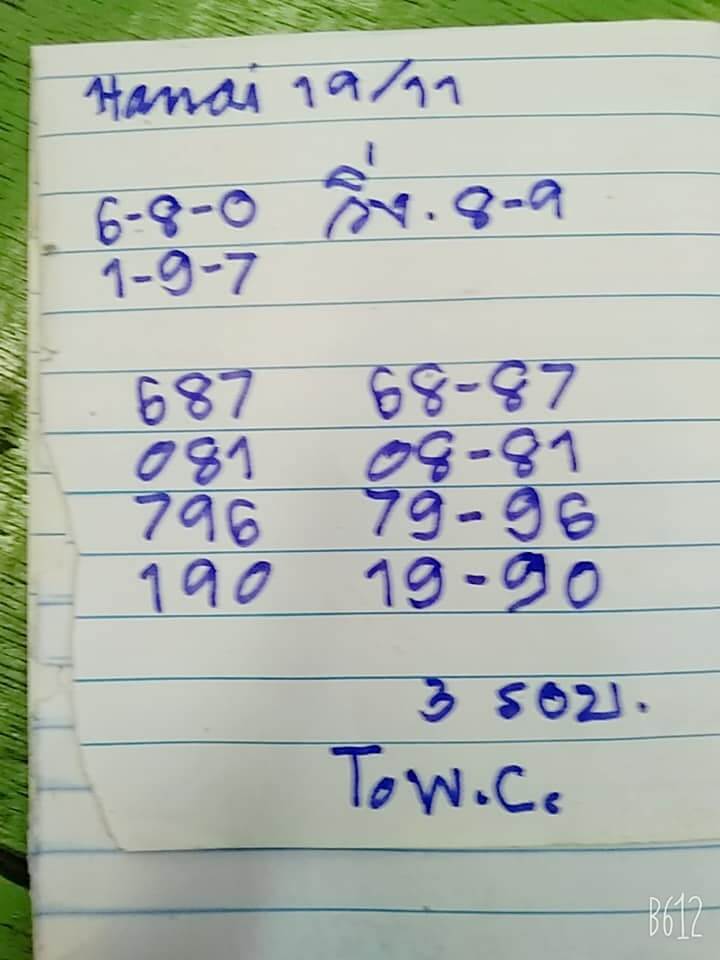 Hanoi 19/11
6-8-0 วิ่ง. 8-9
1-9-7
687 68-87
081 08-81
796 79-96
190 19-90
3 รอบ.
To W.C.
B612